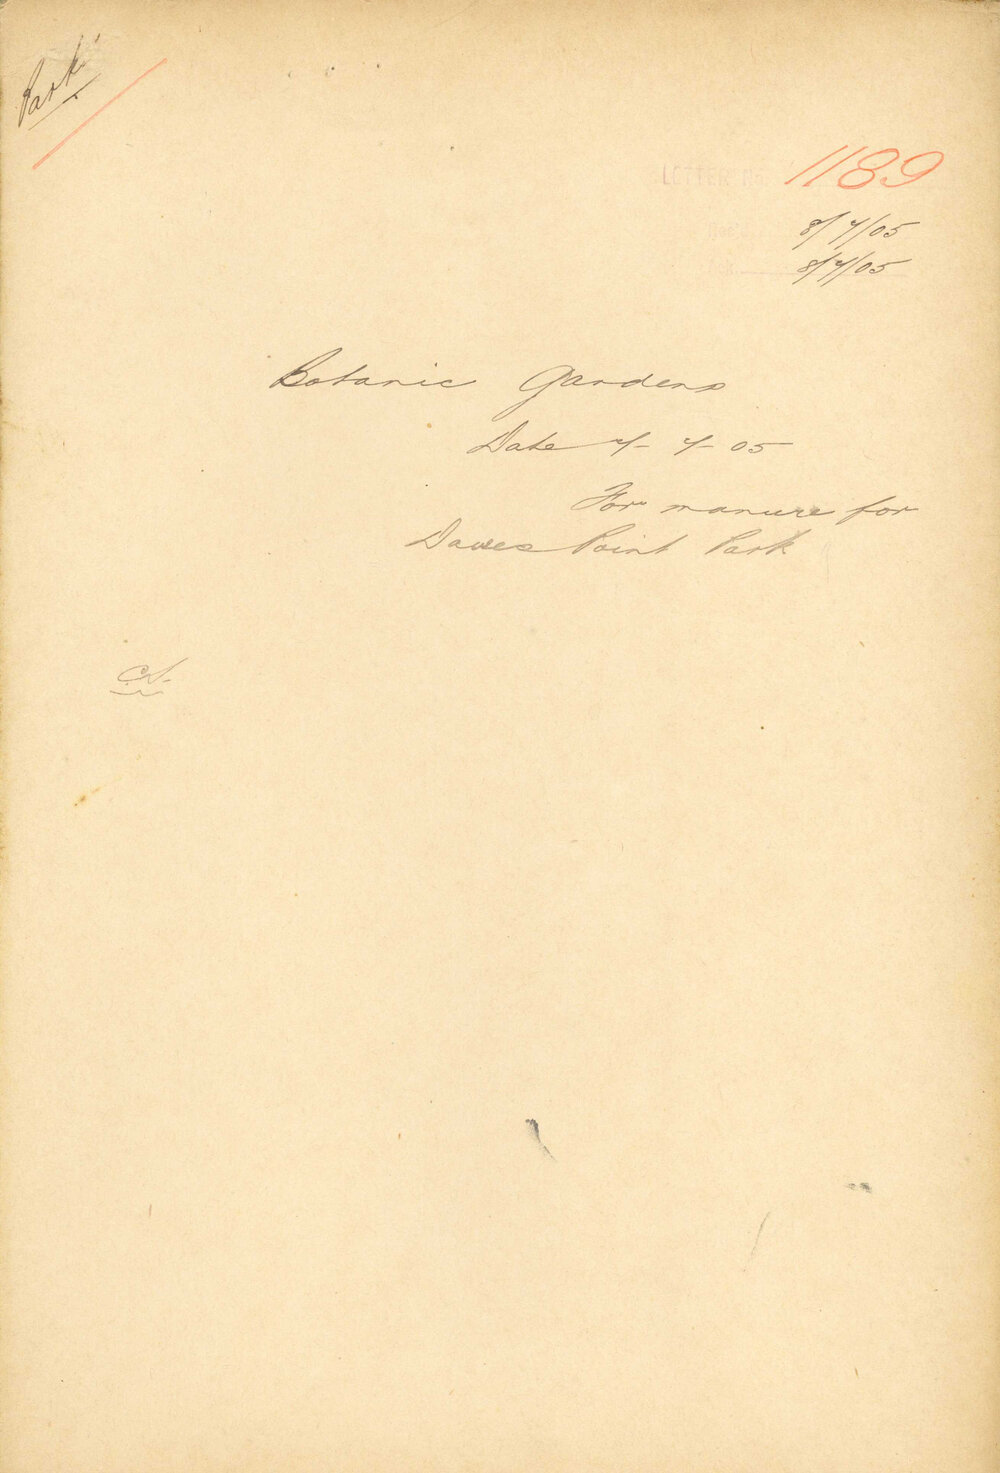 Park
LETTER No 1189
8/7/05
8/7/05
Botanic Gardens
Date 7-7-05
For manure for
Dawes Point Park
C.S.